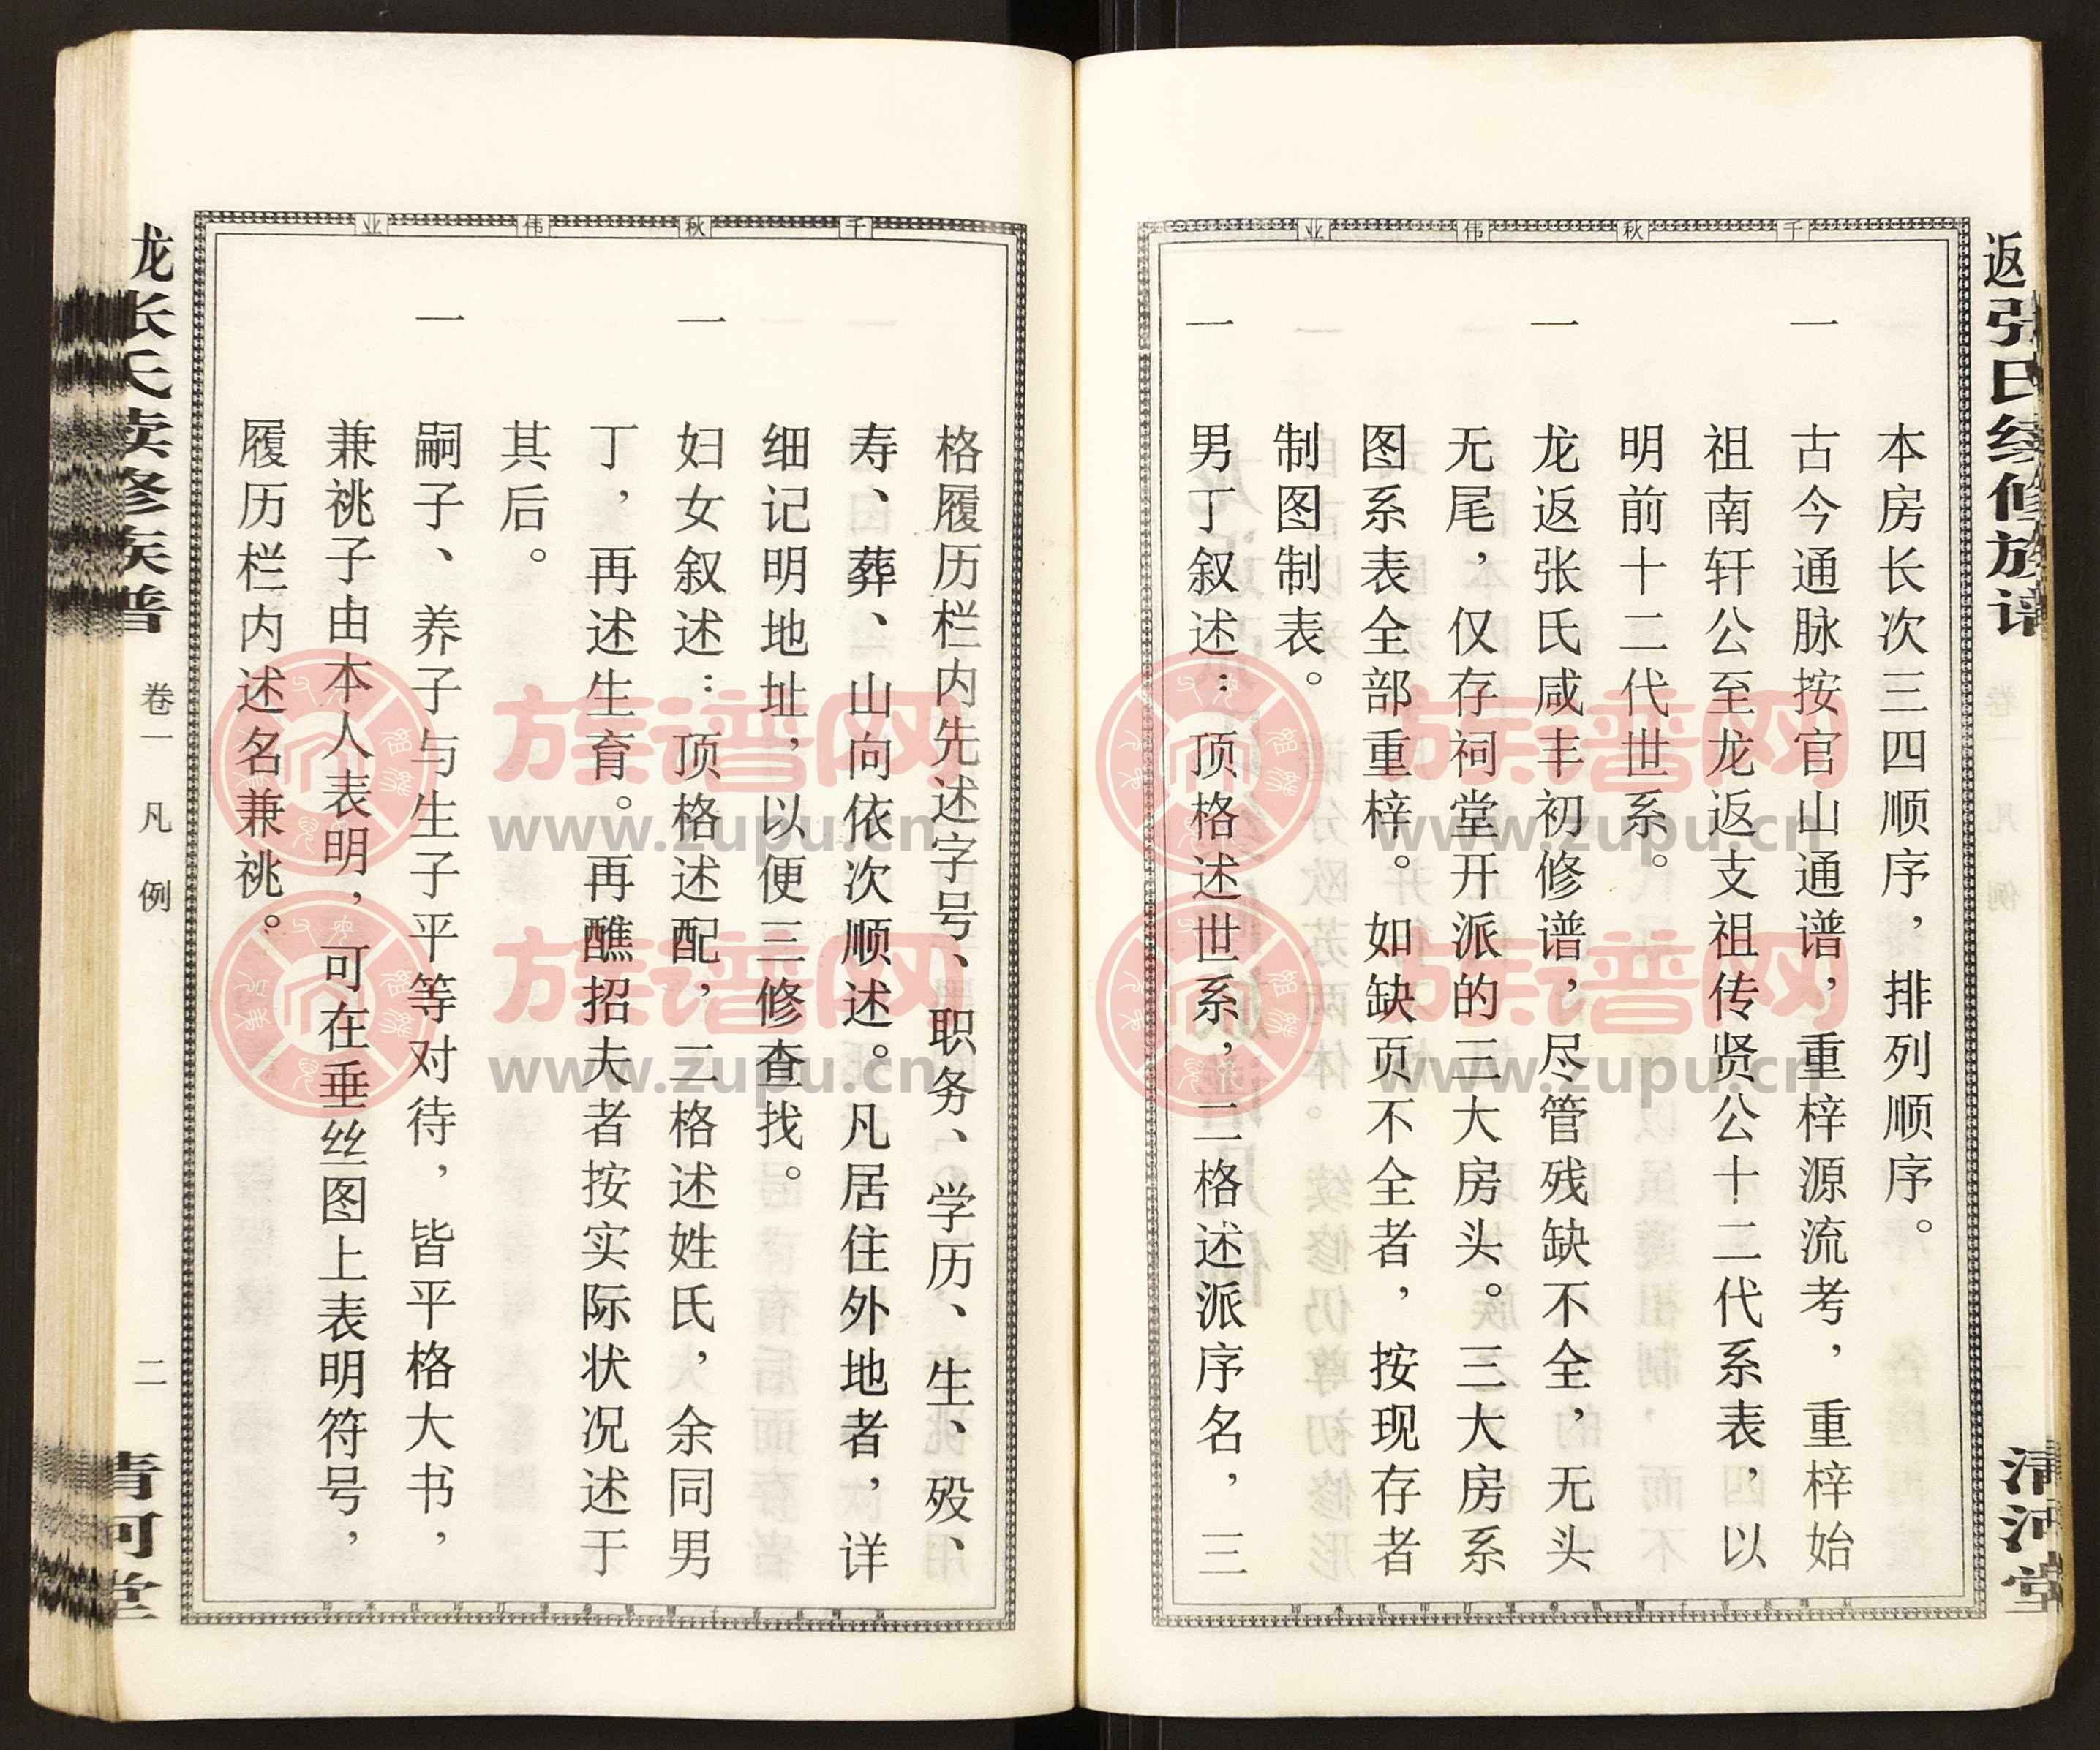 返张氏续修族谱
清河堂
千秋伟业
本房长次三四顺序，排列顺序。
一 古今通脉按官山通谱，重梓源流考，重梓始
祖南轩公至龙返支祖传贤公十二代系表，以
明前十二代世系。
一 龙返张氏咸丰初修谱，尽管残缺不全，无头
无尾，仅存祠堂开派的三大房头。三大房系
图系表全部重梓。如缺页不全者，按现存者
制图制表。
一 男丁叙述：顶格述世系，二格述派序名，三
千秋伟业
格履历栏内先述字号、职务、学历、生、殁、
寿、葬、山向依次顺述。凡居住外地者，详
细记明地址，以便三修查找。
一 妇女叙述：顶格述配，二格述姓氏，余同男
丁，再述生育。再醮招夫者按实际状况述于
其后。
一 嗣子、养子与生子平等对待，皆平格大书，
兼祧子由本人表明，可在垂丝图上表明符号，
履历栏内述名兼祧。
龙张氏续修族谱
卷一 凡例
二
清河堂
族谱网
www.zupu.cn
族谱网
www.zupu.cn
族谱网
www.zupu.cn
族谱网
www.zupu.cn